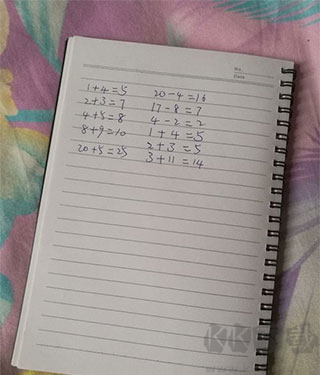 No.
Date
1+4=5 20-4=16
2+3=7 17-8=?
4+5=8 4-2=2
8+9=10 1+4=5
20+5=25 2+3=5
3+11=14